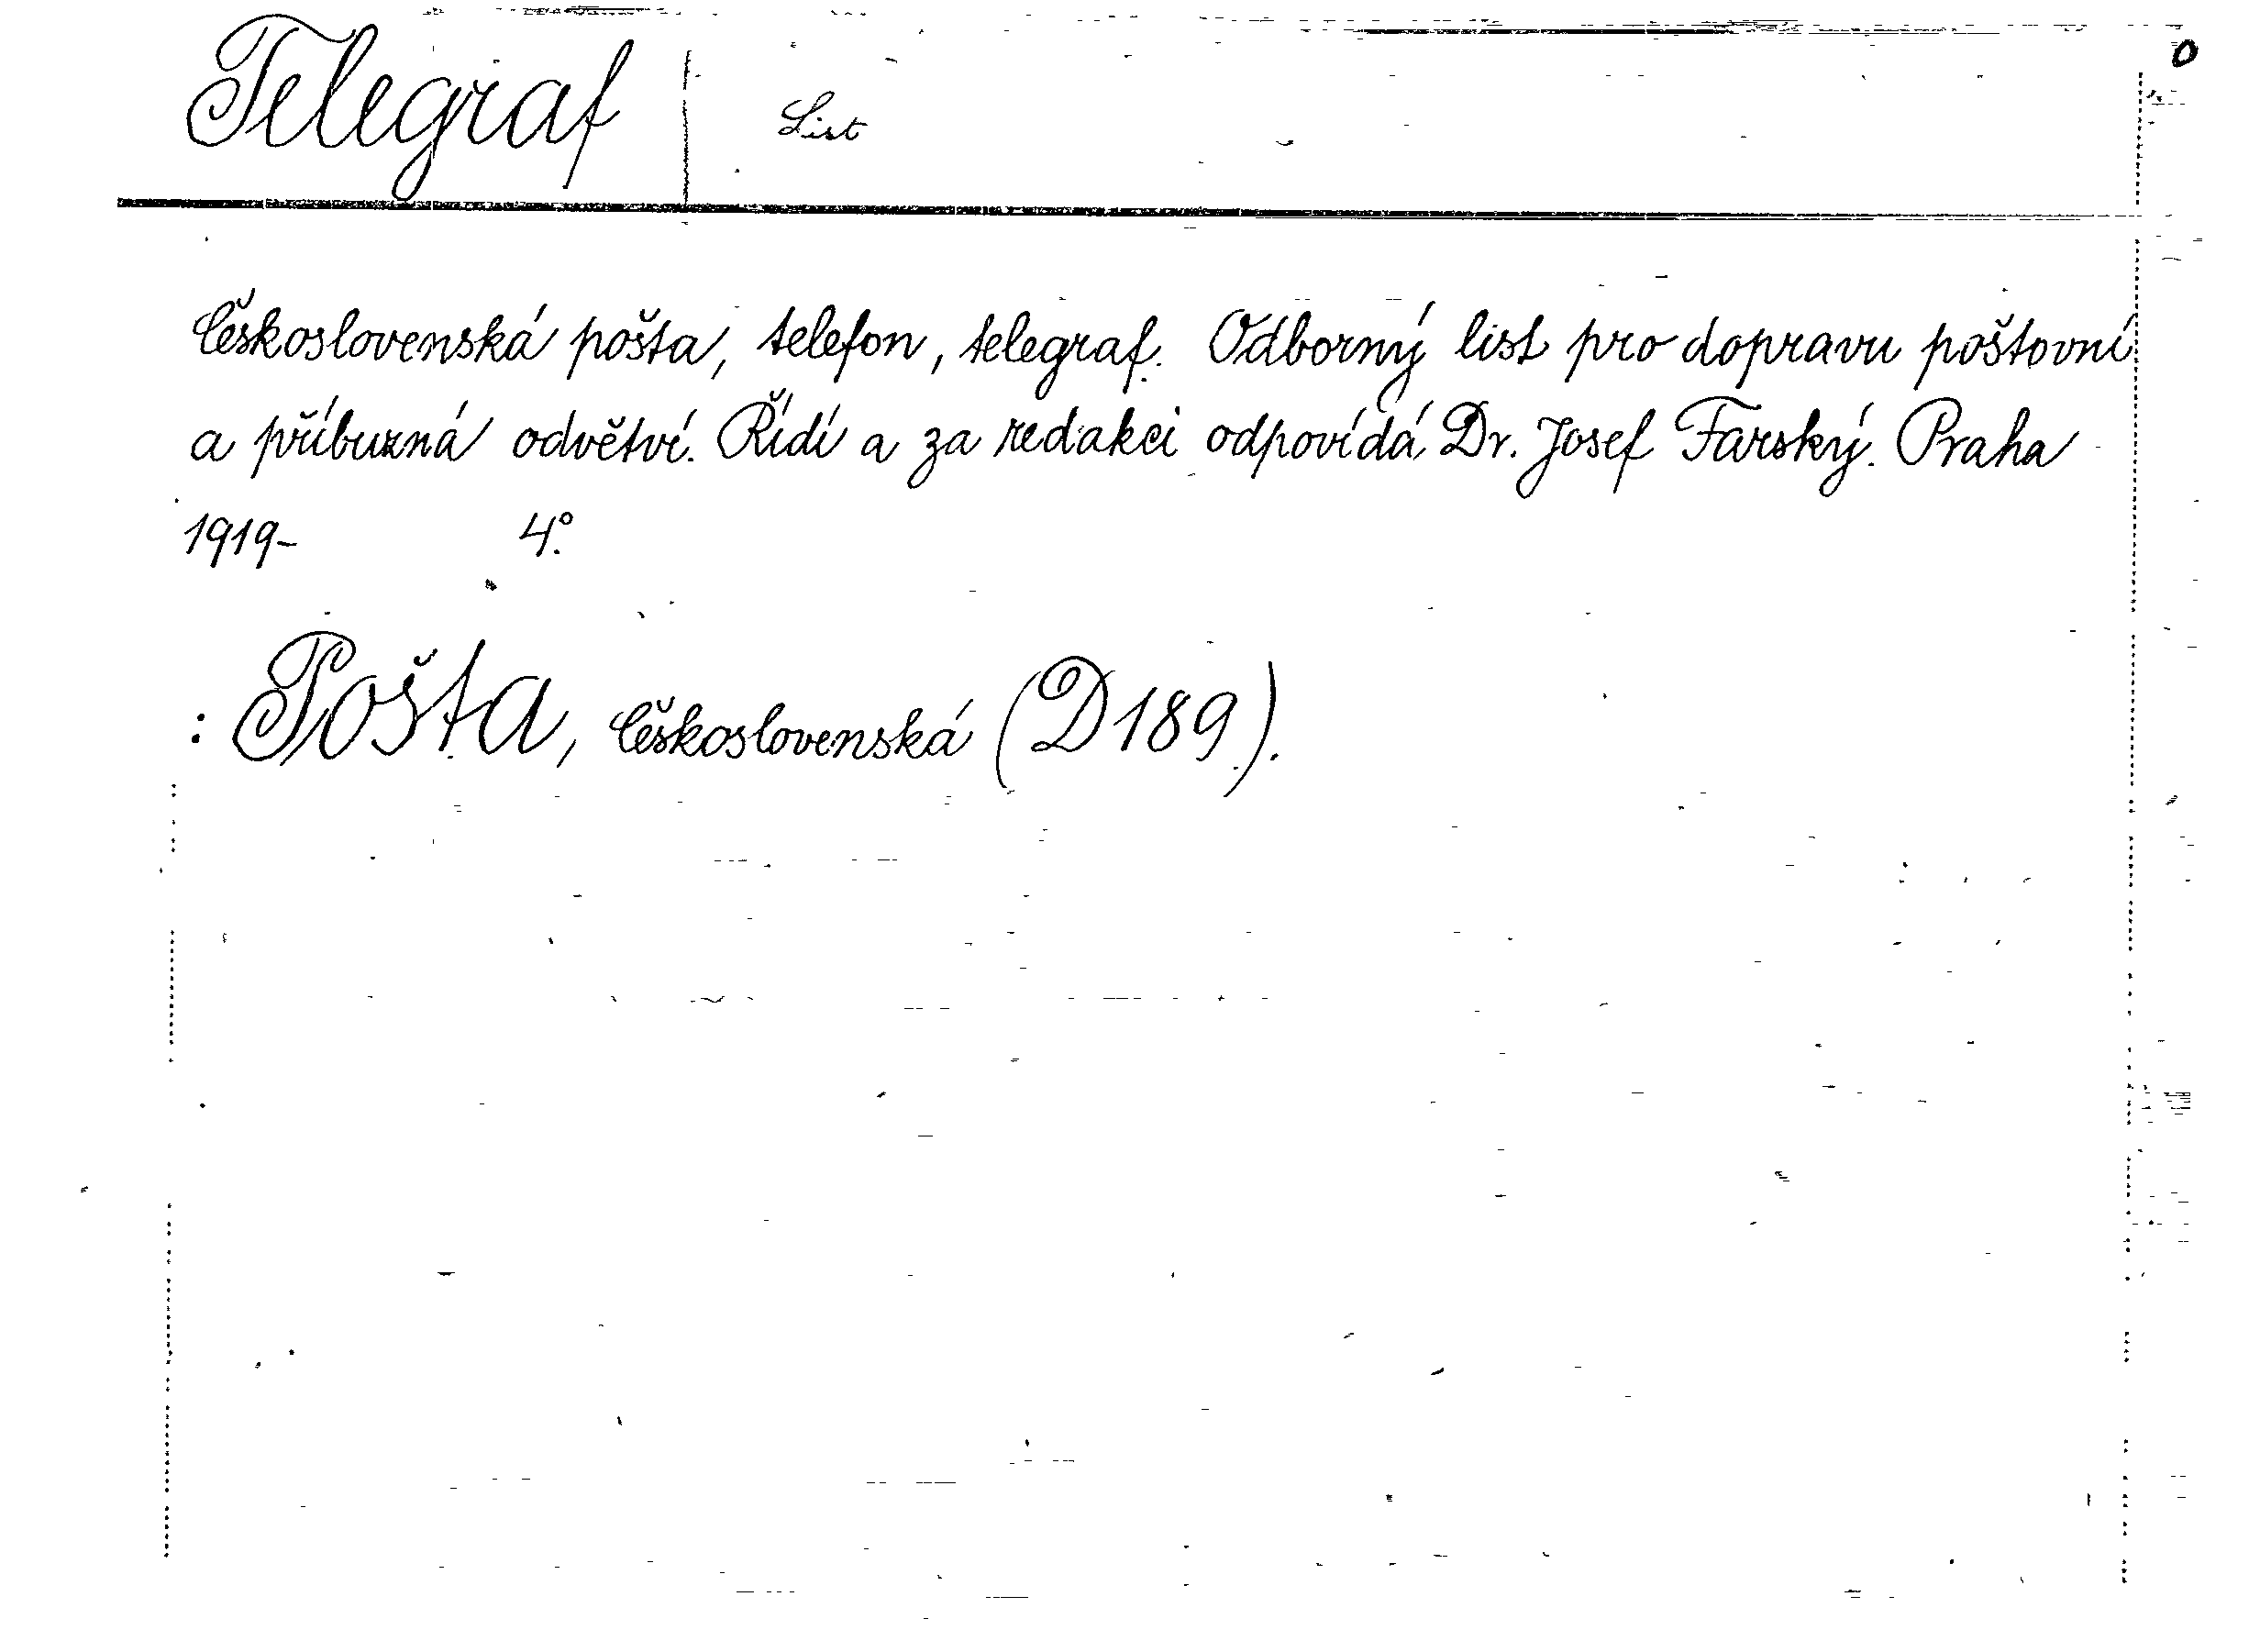 Telegraf List
Československá pošta, telefon, telegraf. Odborný list pro dopravu poštovní
a příbuzná odvětví. Řídí a za redakci odpovídá Dr. Josef Farský. Praha
1919- 4°.
: Pošta, Československá (D189).